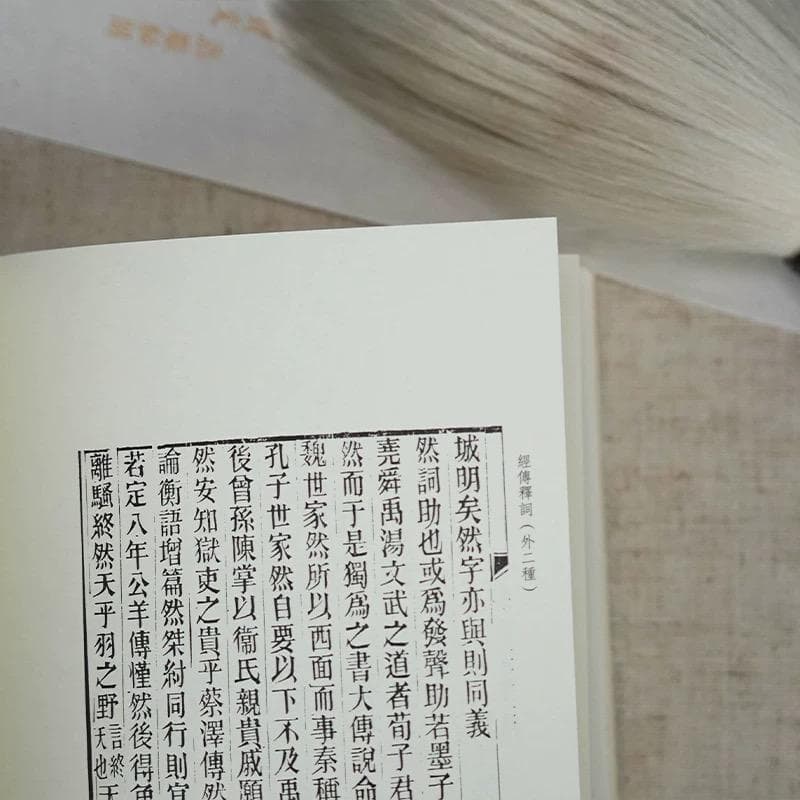 經傳釋詞（外二種）
城明矣然字亦與則同義
然詞助也或爲發聲助若墨子
堯舜禹湯文武之道者荀子君
然而于是獨爲之書大傳說命
魏世家然所以西面而事秦稱
孔子世家然自要以下不及禹
後曾孫陳掌以衞氏親貴戚願
然安知獄吏之貴乎蔡澤傳然
論衡語增篇然桀紂同行則宜
若定八年公羊傳慬然後得免
離騷終然夭乎羽之野言終夭也